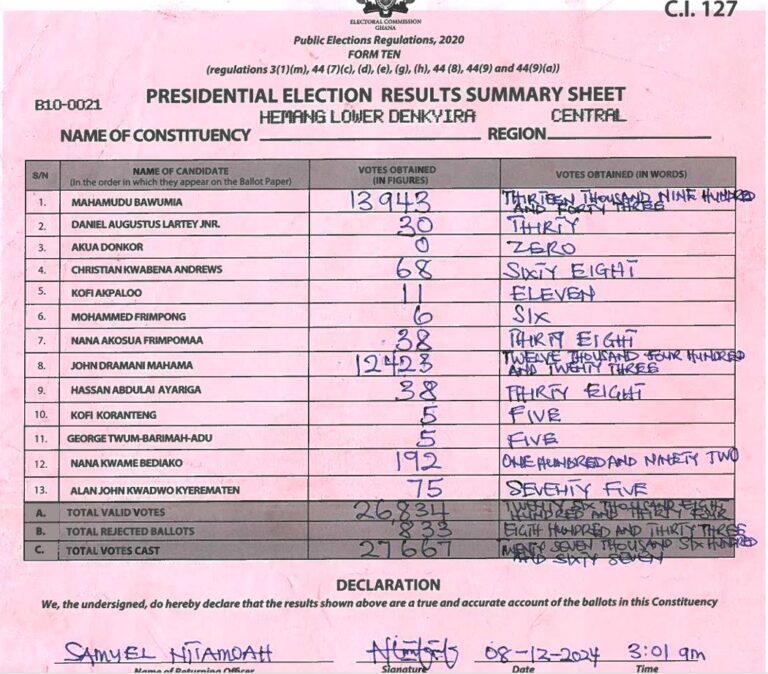 C.I. 127
ELECTORAL COMMISSION
GHANA
Public Elections Regulations, 2020
FORM TEN
(regulations 3(1)(m), 44 (7)(c), (d), (e), (g), (h), 44 (8), 44(9) and 44(9)(a))
B10-0021 PRESIDENTIAL ELECTION RESULTS SUMMARY SHEET
HEMANG LOWER DENKYIRA CENTRAL
NAME OF CONSTITUENCY REGION
S/N NAME OF CANDIDATE (In the order in which they appear on the Ballot Paper) VOTES OBTAINED (IN FIGURES) VOTES OBTAINED (IN WORDS)
1. MAHAMUDU BAWUMIA 13943 THIRTEEN THOUSAND NINE HUNDRED AND FORTY THREE
2. DANIEL AUGUSTUS LARTEY JNR. 30 THIRTY
3. AKUA DONKOR 0 ZERO
4. CHRISTIAN KWABENA ANDREWS 68 SIXTY EIGHT
5. KOFI AKPALOO 11 ELEVEN
6. MOHAMMED FRIMPONG 6 SIX
7. NANA AKOSUA FRIMPOMAA 38 THIRTY EIGHT
8. JOHN DRAMANI MAHAMA 12423 TWELVE THOUSAND FOUR HUNDRED AND TWENTY THREE
9. HASSAN ABDULAI AYARIGA 38 THIRTY EIGHT
10. KOFI KORANTENG 5 FIVE
11. GEORGE TWUM-BARIMAH-ADU 5 FIVE
12. NANA KWAME BEDIAKO 192 ONE HUNDRED AND NINETY TWO
13. ALAN JOHN KWADWO KYEREMATEN 75 SEVENTY FIVE
A. TOTAL VALID VOTES 26,834 TWENTY SIX THOUSAND EIGHT HUNDRED AND THIRTY FOUR
B. TOTAL REJECTED BALLOTS 833 EIGTH HUNDRED AND THIRTY THREE
C. TOTAL VOTES CAST 27667 TWENTY SEVEN THOUSAND SIX HUNDRED AND SIXTY SEVEN
DECLARATION
We, the undersigned, do hereby declare that the results shown above are a true and accurate account of the ballots in this Constituency
SAMUEL NTIAMOAH 08-12-2024 3:01 am
Name of Returning Officer Signature Date Time